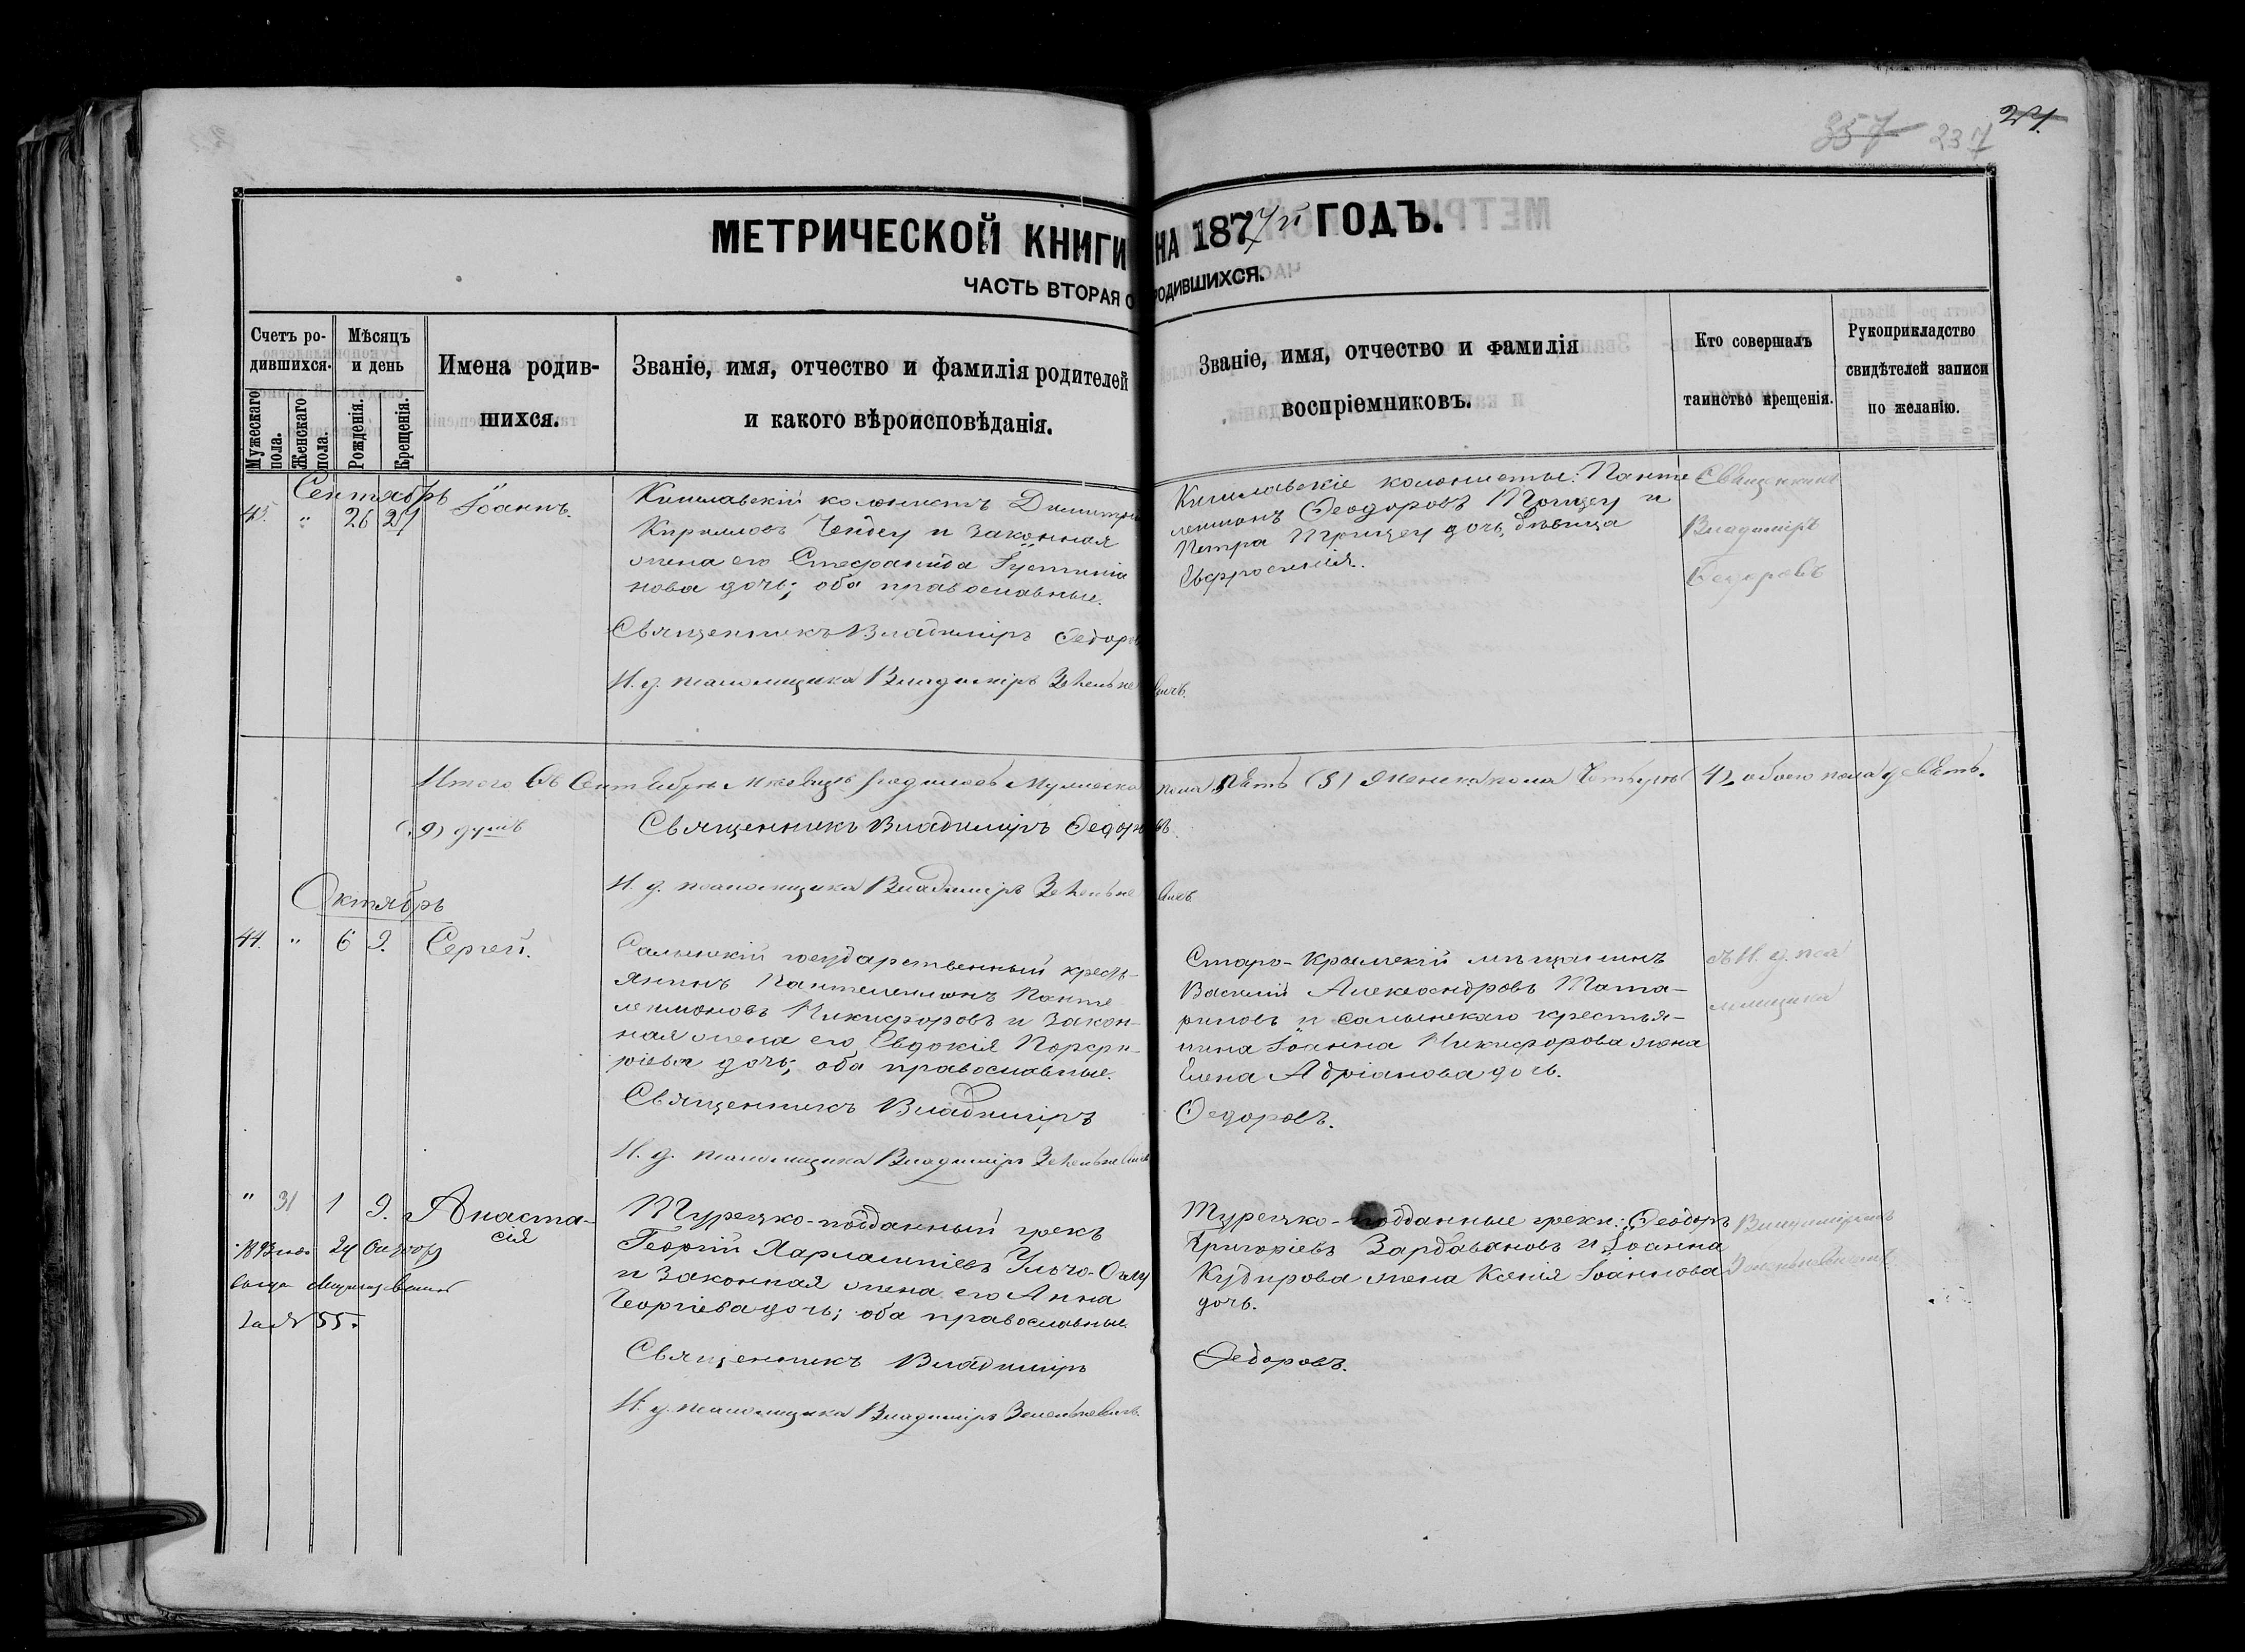 357 237 21.
МЕТРИЧЕСКОЙ КНИГИ НА 1877й ГОДЪ.
ЧАСТЬ ВТОРАЯ О РОДИВШИХСЯ.
Счетъ родившихся.
Мужескаго пола.
Женскаго пола.
Мѣсяцъ и день
Рожденія.
Крещенія.
Имена родившихся.
Званіе, имя, отчество и фамилія родителей
и какого вѣроисповѣданія.
Званіе, имя, отчество и фамилія
воспріемниковъ.
Кто совершалъ
таинство крещенія.
Рукоприкладство
свидѣтелей записи
по желанію.
Сентябрь
" 26 27 Іоаннъ.
Кишлавскій колонистъ Димитрій
Кирилловъ и законная
жена его Стефанида Іустиніа
нова дочь; оба православные.
Священникъ Владиміръ Федоровъ
И. д. псаломщика Владиміръ
Кишлавскіе колонисты: Панте
леимонъ Феодоровъ и
Петра дочь, дѣвица
Евфросинія.
Священникъ
Владиміръ
Федоровъ
Итого въ Сентябрѣ мѣсяцѣ родилось мужеска пола пять (5) женска пола четыре 4, обоего пола девять.
(9) душъ
Священникъ Владиміръ Федоровъ.
И. д. псаломщика Владиміръ
Октябрь
44. " 6 9. Сергей.
Салынскій государственный кресть-
янинъ Пантелеимонъ Панте
леимоновъ Никифоровъ и закон-
ная жена его Евдокія Порфи-
ріева дочь; оба православные.
Священникъ Владиміръ
Федоровъ.
И. д. псаломщика Владиміръ
Старо-Крымскій мѣщанинъ
Василій Александровъ Тата-
риновъ и салынскаго крестья-
нина Іоанна Никифорова жена
Елена Адріанова дочь.
съ И. д. пса
ломщика
" 31 1 9. Анаста-
сія
24
за № 55.
Турецко-подданный грекъ
Георгій Харлампіевъ
и законная жена его Анна
Георгіева дочь; оба православные.
Священникъ Владиміръ
Федоровъ.
И. д. псаломщика Владиміръ
Турецко-подданные греки: Феодоръ
Григоріевъ Зардавановъ и Іоанна
Кудирова жена Ксенія Іоаннова
дочь.
Владиміромъ